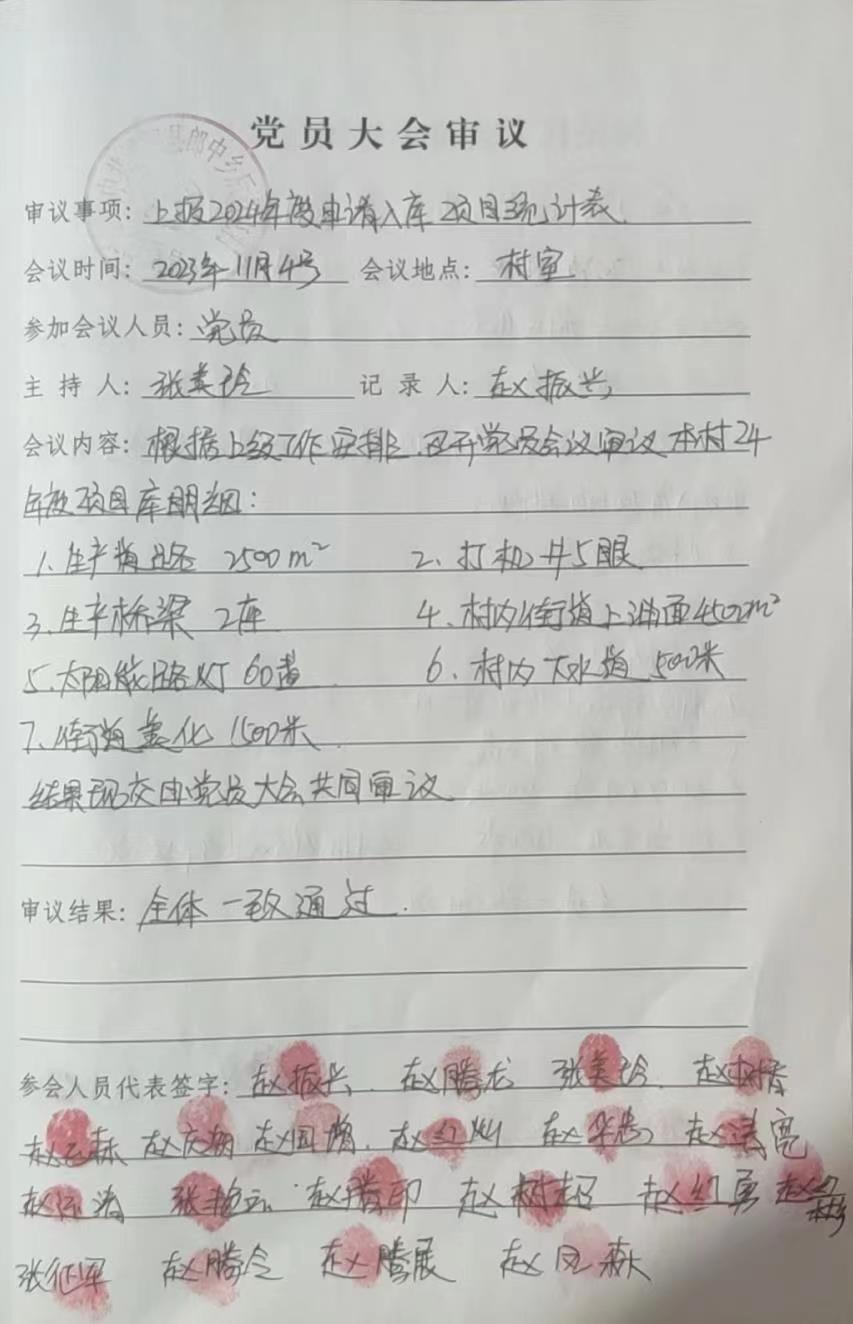 党员大会审议
县郎中乡
审议事项：上报2024年度申请入库项目统计表.
会议时间：2023年11月4号 会议地点：村室
参加会议人员：党员
主持人：张美玲 记录人：赵振兴
会议内容：根据上级工作安排，召开党员会议审议本村24
年度项目库明细：
1、生产道路 2500m² 2、打机井5眼
3、生产桥梁 2座 4、村内街道上油面4500m²
5、太阳能路灯 60盏 6、村内下水道 500米
7、街道美化 1500米.
结果现交由党员大会共同审议
审议结果：全体一致通过.
参会人员代表签字：赵振兴. 赵腾龙 张美玲. 赵
赵 赵庆 赵国 赵红 赵 赵 亮
赵 张艳 赵腾印 赵树超 赵红勇 赵红
张征军 赵腾 赵腾展 赵凤森